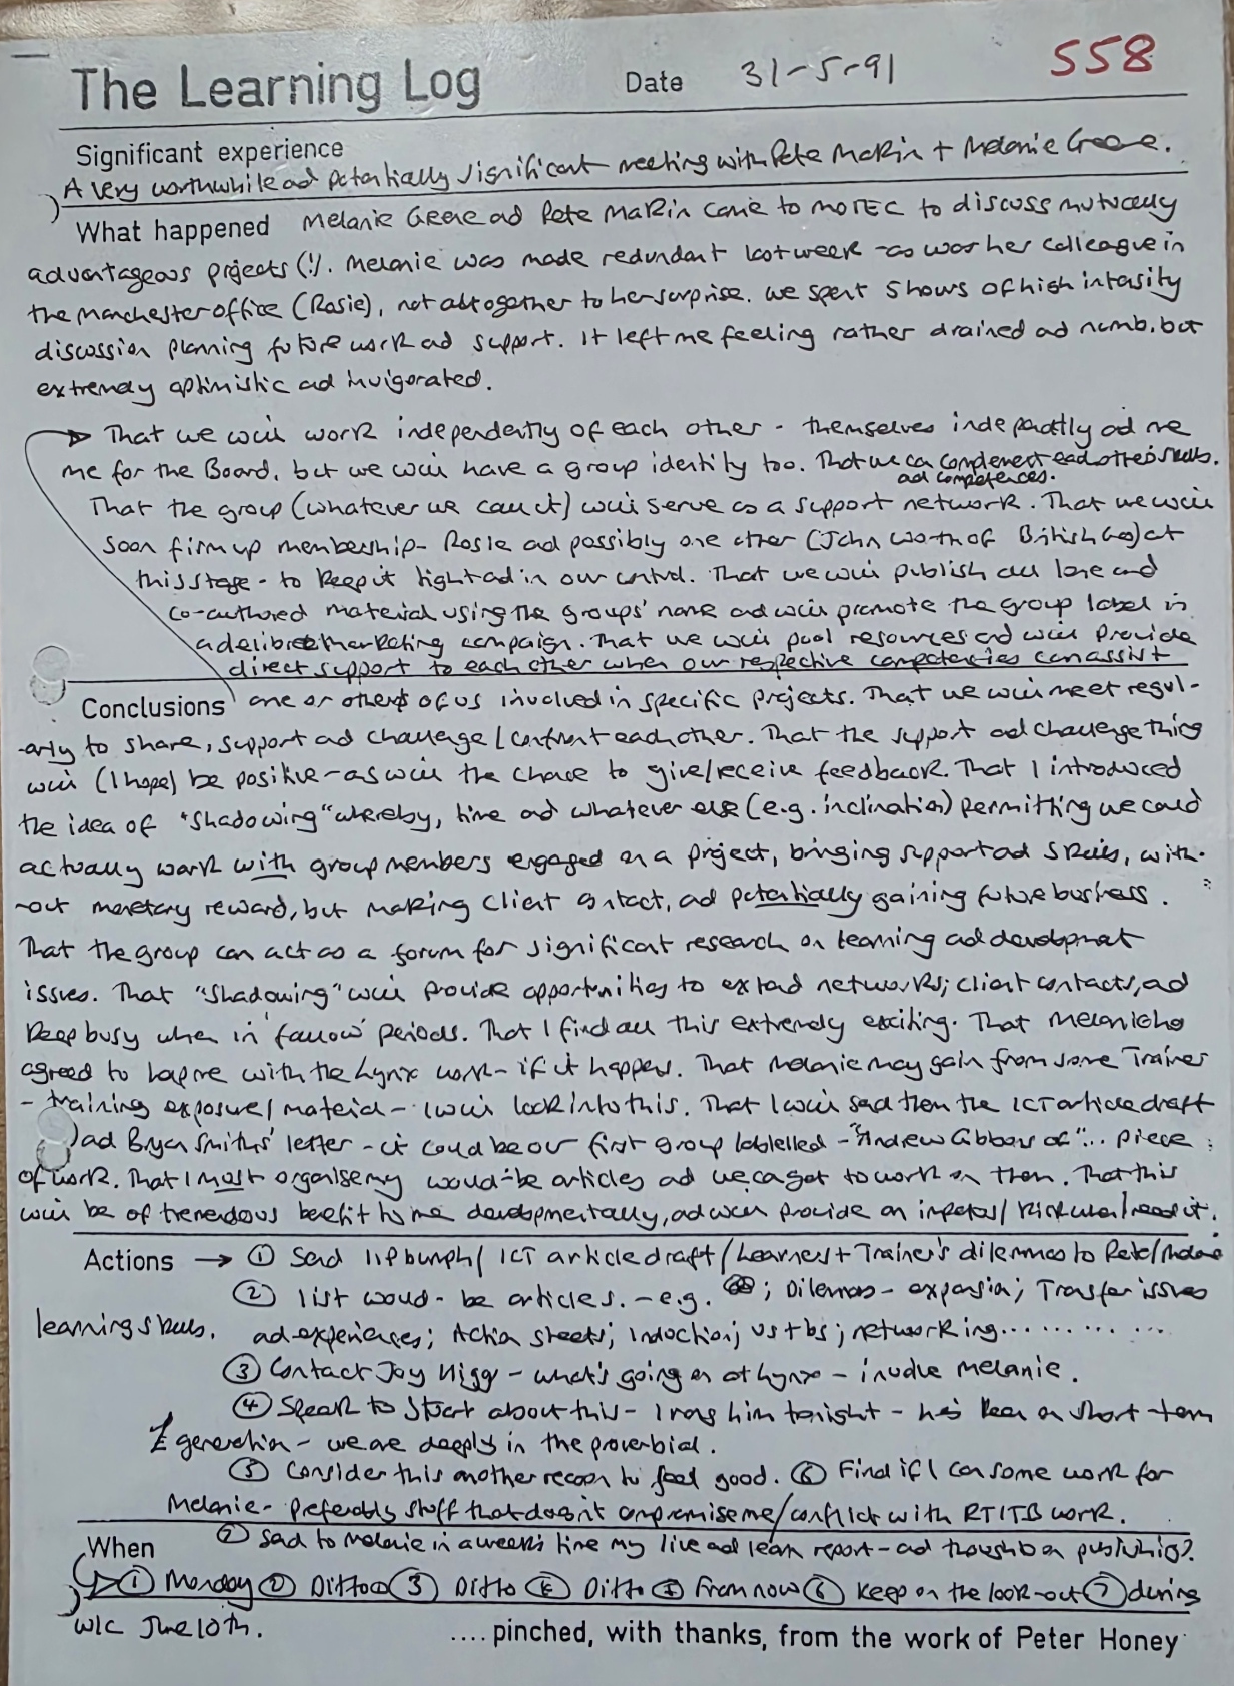 The Learning Log Date 31-5-91 558
Significant experience
A very worthwhile ad potentially significant meeting with Pete Makin + Melanie Greene.
What happened Melanie Greene ad Pete Makin came to MOTEC to discuss mutually
advantageous projects (!). Melanie was made redundant last week - as was her colleague in
the Manchester office (Rosie), not altogether to her surprise. We spent 5 hours of high intensity
discussion planning future work ad support. It left me feeling rather drained ad numb, but
extremely optimistic ad invigorated.
That we will work independently of each other - themselves independently ad me
me for the Board, but we will have a group identity too. That we can complement each other's skills.
ad competences.
That the group (whatever we call it) will serve as a support network. That we will
soon firm up membership - Rosie ad possibly one other (John Worth of British Gas) at
this stage - to keep it tight ad in our control. That we will publish all lone and
co-authored material using the groups' name ad will promote the group label in
a deliberate marketing campaign. That we will pool resources ad will provide
direct support to each other when our respective competencies can assist
Conclusions one or others of us involved in specific projects. That we will meet regul-
-arly to share, support ad challenge / confront each other. That the support ad challenge thing
will (I hope) be positive - as will the chance to give/receive feedback. That I introduced
the idea of "shadowing" whereby, time ad whatever else (e.g. inclination) permitting we could
actually work with group members engaged on a project, bringing support ad skills, with-
-out monetary reward, but making client contact, ad potentially gaining future business.
That the group can act as a forum for significant research on learning ad development
issues. That "shadowing" will provide opportunities to extend networks; client contacts, ad
keep busy when in 'fallow' periods. That I find all this extremely exciting. That Melanie has
agreed to help me with the Lynx work - if it happens. That Melanie may gain from some Trainer
- training exposure / material - I will look into this. That I will send them the ICT article draft
ad Bryan Smiths' letter - it could be our first group lablelled - "Andrew Gibbons of "... piece
of work. That I must organise my would-be articles ad we can get to work on them. That this
will be of tremendous benefit to me developmentally, ad will provide an impetus / kick when I need it.
Actions → ① Send 11P bumph / ICT article draft / Learner's + Trainer's dilemmas to Pete / Melanie
② List would-be articles. - e.g. ; Dilemmas - expansion; Transfer issues
learning skills. ad experiences; Action sheets; Induction; us + bs; networking..........
③ Contact Joy Higg - what's going on at Lynx - involve Melanie.
④ Speak to Stuart about this - I rang him tonight - he's keen on short-term
£ generation - we are deeply in the proverbial.
⑤ Consider this another reason to feel good. ⑥ Find if I can some work for
Melanie - preferably stuff that doesn't compromise me / conflict with RTITB work.
⑦ Send to Melanie in a week's time my live ad learn report - ad thoughts on publishing?
When
① Monday ② Ditto ③ Ditto ④ Ditto ⑤ From now ⑥ Keep on the look-out ⑦ during
w/c June 10th.
.... pinched, with thanks, from the work of Peter Honey